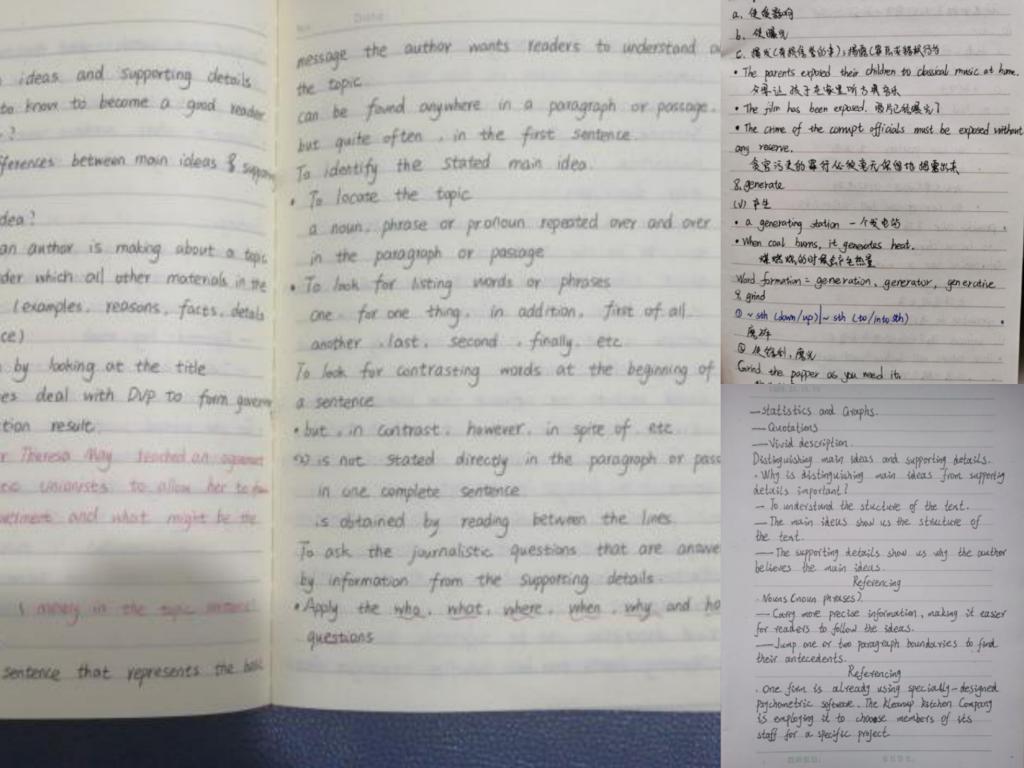 ideas and supporting details
to know to become a good reader
?
fferences between main ideas & suppor
dea?
an author is making about a topic
der which all other materials in the
(examples, reasons, facts, details
ce)
by looking at the title
es deal with DVP to form govern
tion result.
r Theresa May reached an
unionists to allow her to
and what might be the
merely in the topic
sentence that represents the basic
message the author wants readers to understand a
the topic.
can be found anywhere in a paragraph or passage.
but quite often, in the first sentence.
To identify the stated main idea.
• To locate the topic
a noun, phrase or pronoun repeated over and over
in the paragraph or passage
• To look for listing words or phrases
one. for one thing, in addition, first of all.
another, last, second, finally, etc
To look for contrasting words at the beginning of
a sentence
• but, in contrast, however, in spite of etc
is not stated directly in the paragraph or pass
in one complete sentence
is obtained by reading between the lines
To ask the journalistic questions that are answe
by information from the supporting details.
• Apply the who, what, where, when, why and ho
questions
a. 使受影响
b. 使曝光
c.
• The parents exposed their children to classical music at home.
父母让孩子在家里听古典音乐
• The film has been exposed. 胶片已经曝光了
• The crime of the corrupt officials must be exposed without
any reserve.
贪官污吏的罪行必须毫无保留地揭露出来
8. generate
(v) 产生
• a generating station 一个发电站
• When coal burns, it generates heat.
煤燃烧的时候会产生热量
Word formation = generation, generator, generative
9. grind
① ~ sth (down/up) | ~ sth (to/into sth)
磨碎
②
Grind the papper as you need it.
—Statistics and Graphs.
— Quotations
—Vivid description.
Distinguishing main ideas and supporting details.
· Why is distinguishing main ideas from supporting
details important?
— To understand the stucture of the text.
—The main ideas show us the structure of
the text.
—The supporting details show us why the author
believes the main ideas.
Referencing
· Nouns (noun phrases).
— Carry more precise information, making it easier
for readers to follow the ideas.
—Jump one or two paragraph boundaries to find
their antecedents.
Referencing
· One firm is already using specially-designed
psychometric software. The Kleanup Kitchen Company
is employing it to choose members of its
staff for a specific project